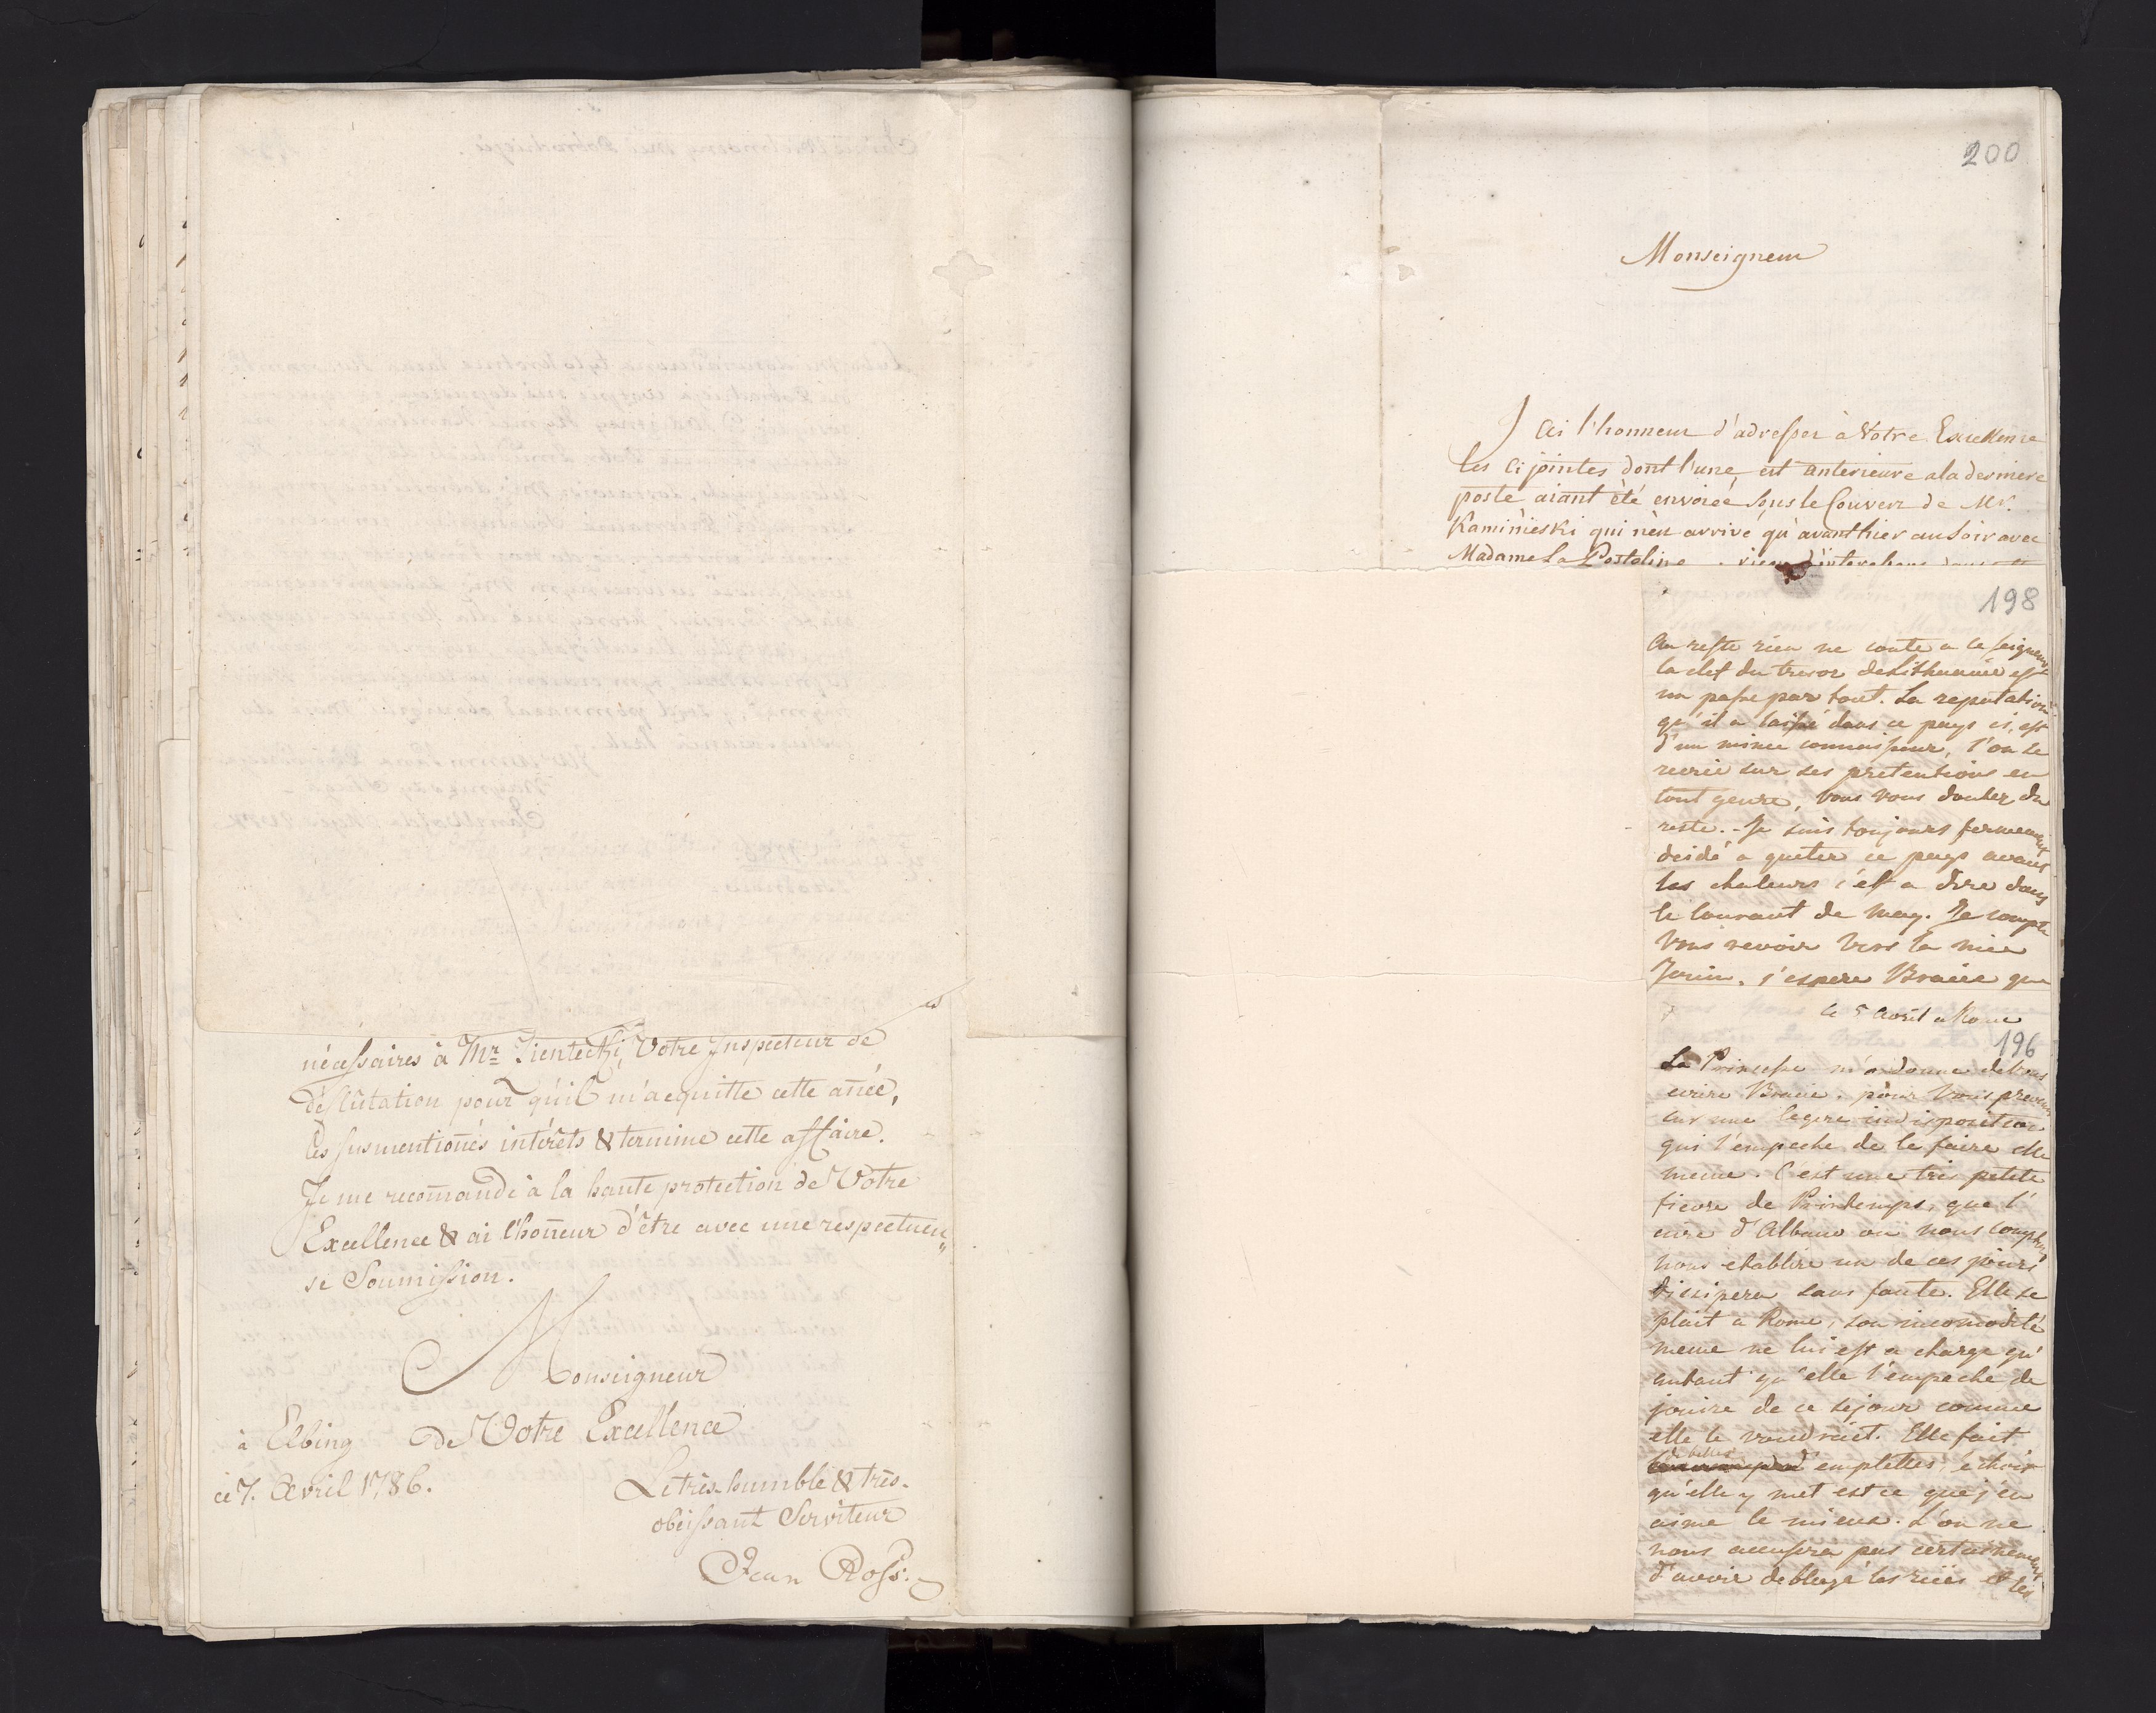 nécessaires à Mr. Votre Inspecteur de
déflûtation pour qu'il m'acquitte cette anée,
les susmentionés intérets & termine cette affaire.
Je me recomande à la haute protection de Votre
Excellence & ai l'honeur d'être avec une respectueu„
se Soumission.
Monseigneur
de Votre Excellence
à Elbing
ce 7. Avril 1786.
Le très-humble & très-
obéissant Serviteur
Jean Ross.
200
Monseigneur
J'ai l'honneur d'adresser à Votre Excellence
les ci jointes dont l'une, est anterieure a la derniere
poste aiant été envoieé sous le Couvert de Mr.
Kaminieski qui n'est arrivé qu'avanthier au soir avec
Madame La Postoline rien
198
Au reste rien ne coute a ce seigneur
la clef du tresor de Lithuanie est
un passe par tout. La reputation
qu'il a laissé dans ce pays ci, est
d'un mince connaisseur, l'on se
recrie sur ses pretentions en
tout genre, vous vous doutez du
reste. - Je suis toujours fermement
decidé a quiter ce pays avant
les chaleurs c'est a dire dans
le courant de may. Je compte
Vous revoir vers la mie
Jouin, j'espere Bracie que
le 5 Avril a Rome
196
La Princesse m'a donne de Vous
ecrire Bracie, pour Vous prevenir
sur une legere indisposition
qui l'empeche de le faire elle
meme. C'est une tres petite
fievre de Printemps, que l'
aire d'Albano ou nous comptons
nous etablire un de ces jours
dissipera sans faute. Elle se
plait a Rome, son incomodité
meme ne lui est a charge qu'
autant qu'elle l'empeche de
jouire de ce sejour comme
elle le voudroit. Elle fait
belles
emplettes, le choix
qu'elle y met est ce que j'en
aime le mieux. L'on ne
nous accusera pas certainement
d'avoir les rues et les